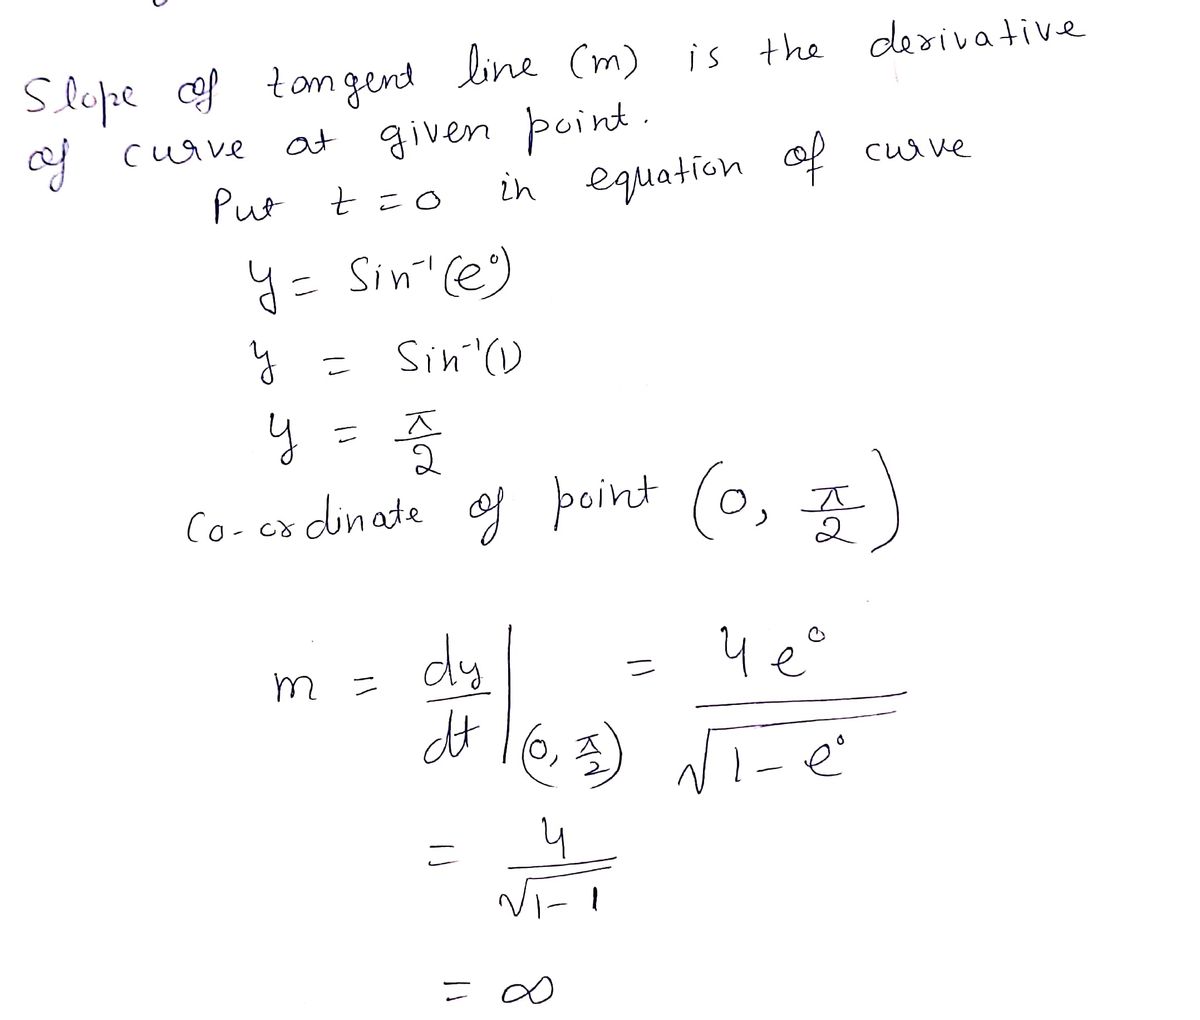 Slope of tangent line (m) is the derivative
of curve at given point.
Put t = 0 in equation of curve
y = Sin⁻¹(e⁰)
y = Sin⁻¹(1)
y = π/2
Co-ordinate of point (0, π/2)
m = dy/dt |(0, π/2) = 4e⁰/√(1-e⁰)
= 4/√(1-1)
= ∞